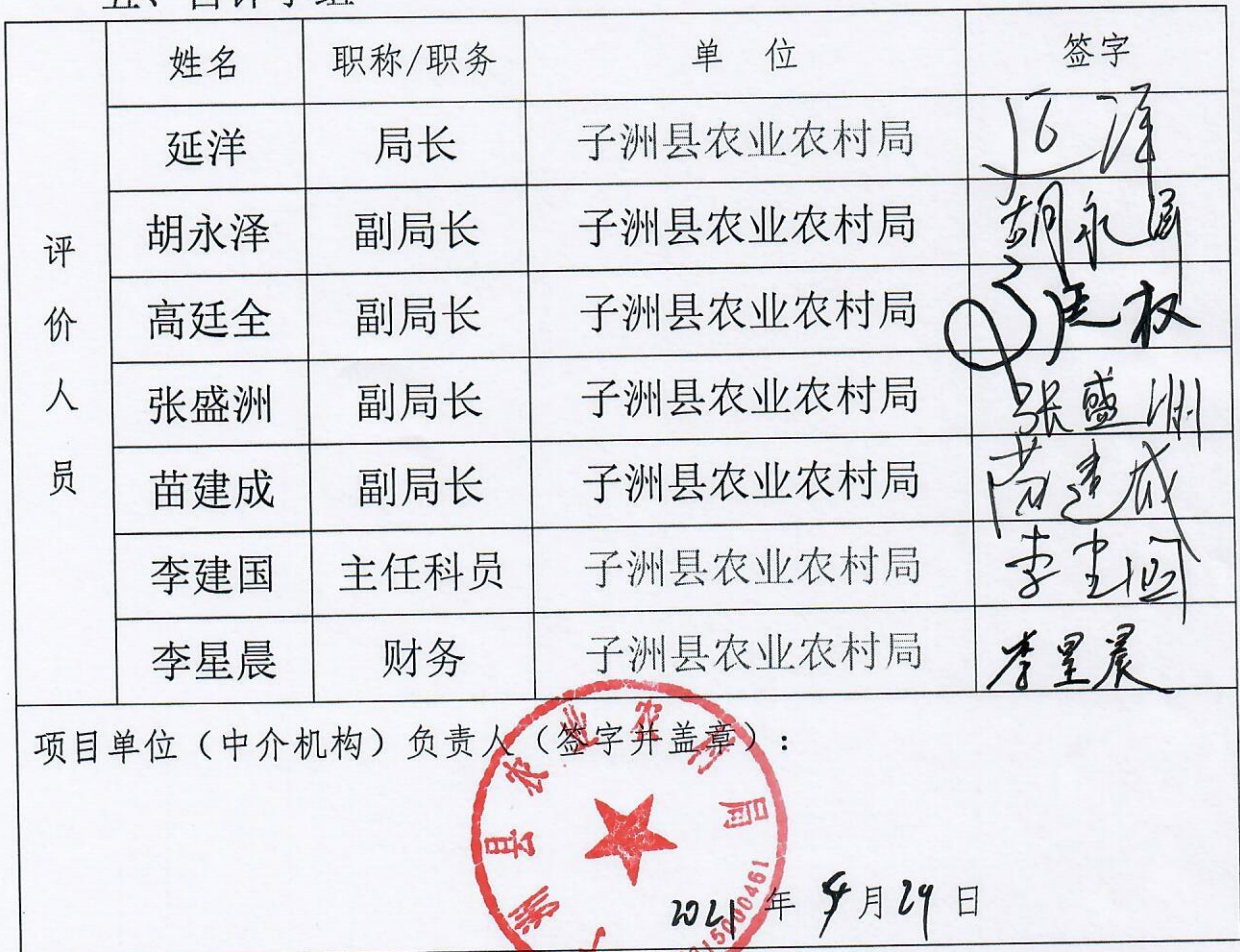 姓名 职称/职务 单 位 签字
延洋 局长 子洲县农业农村局 延洋
胡永泽 副局长 子洲县农业农村局 胡永泽
高廷全 副局长 子洲县农业农村局
张盛洲 副局长 子洲县农业农村局 张盛洲
苗建成 副局长 子洲县农业农村局 苗建成
李建国 主任科员 子洲县农业农村局 李建国
李星晨 财务 子洲县农业农村局 李星晨
评价人员
项目单位（中介机构）负责人（签字并盖章）：
洲县农业农村局
2021 年 月 29 日